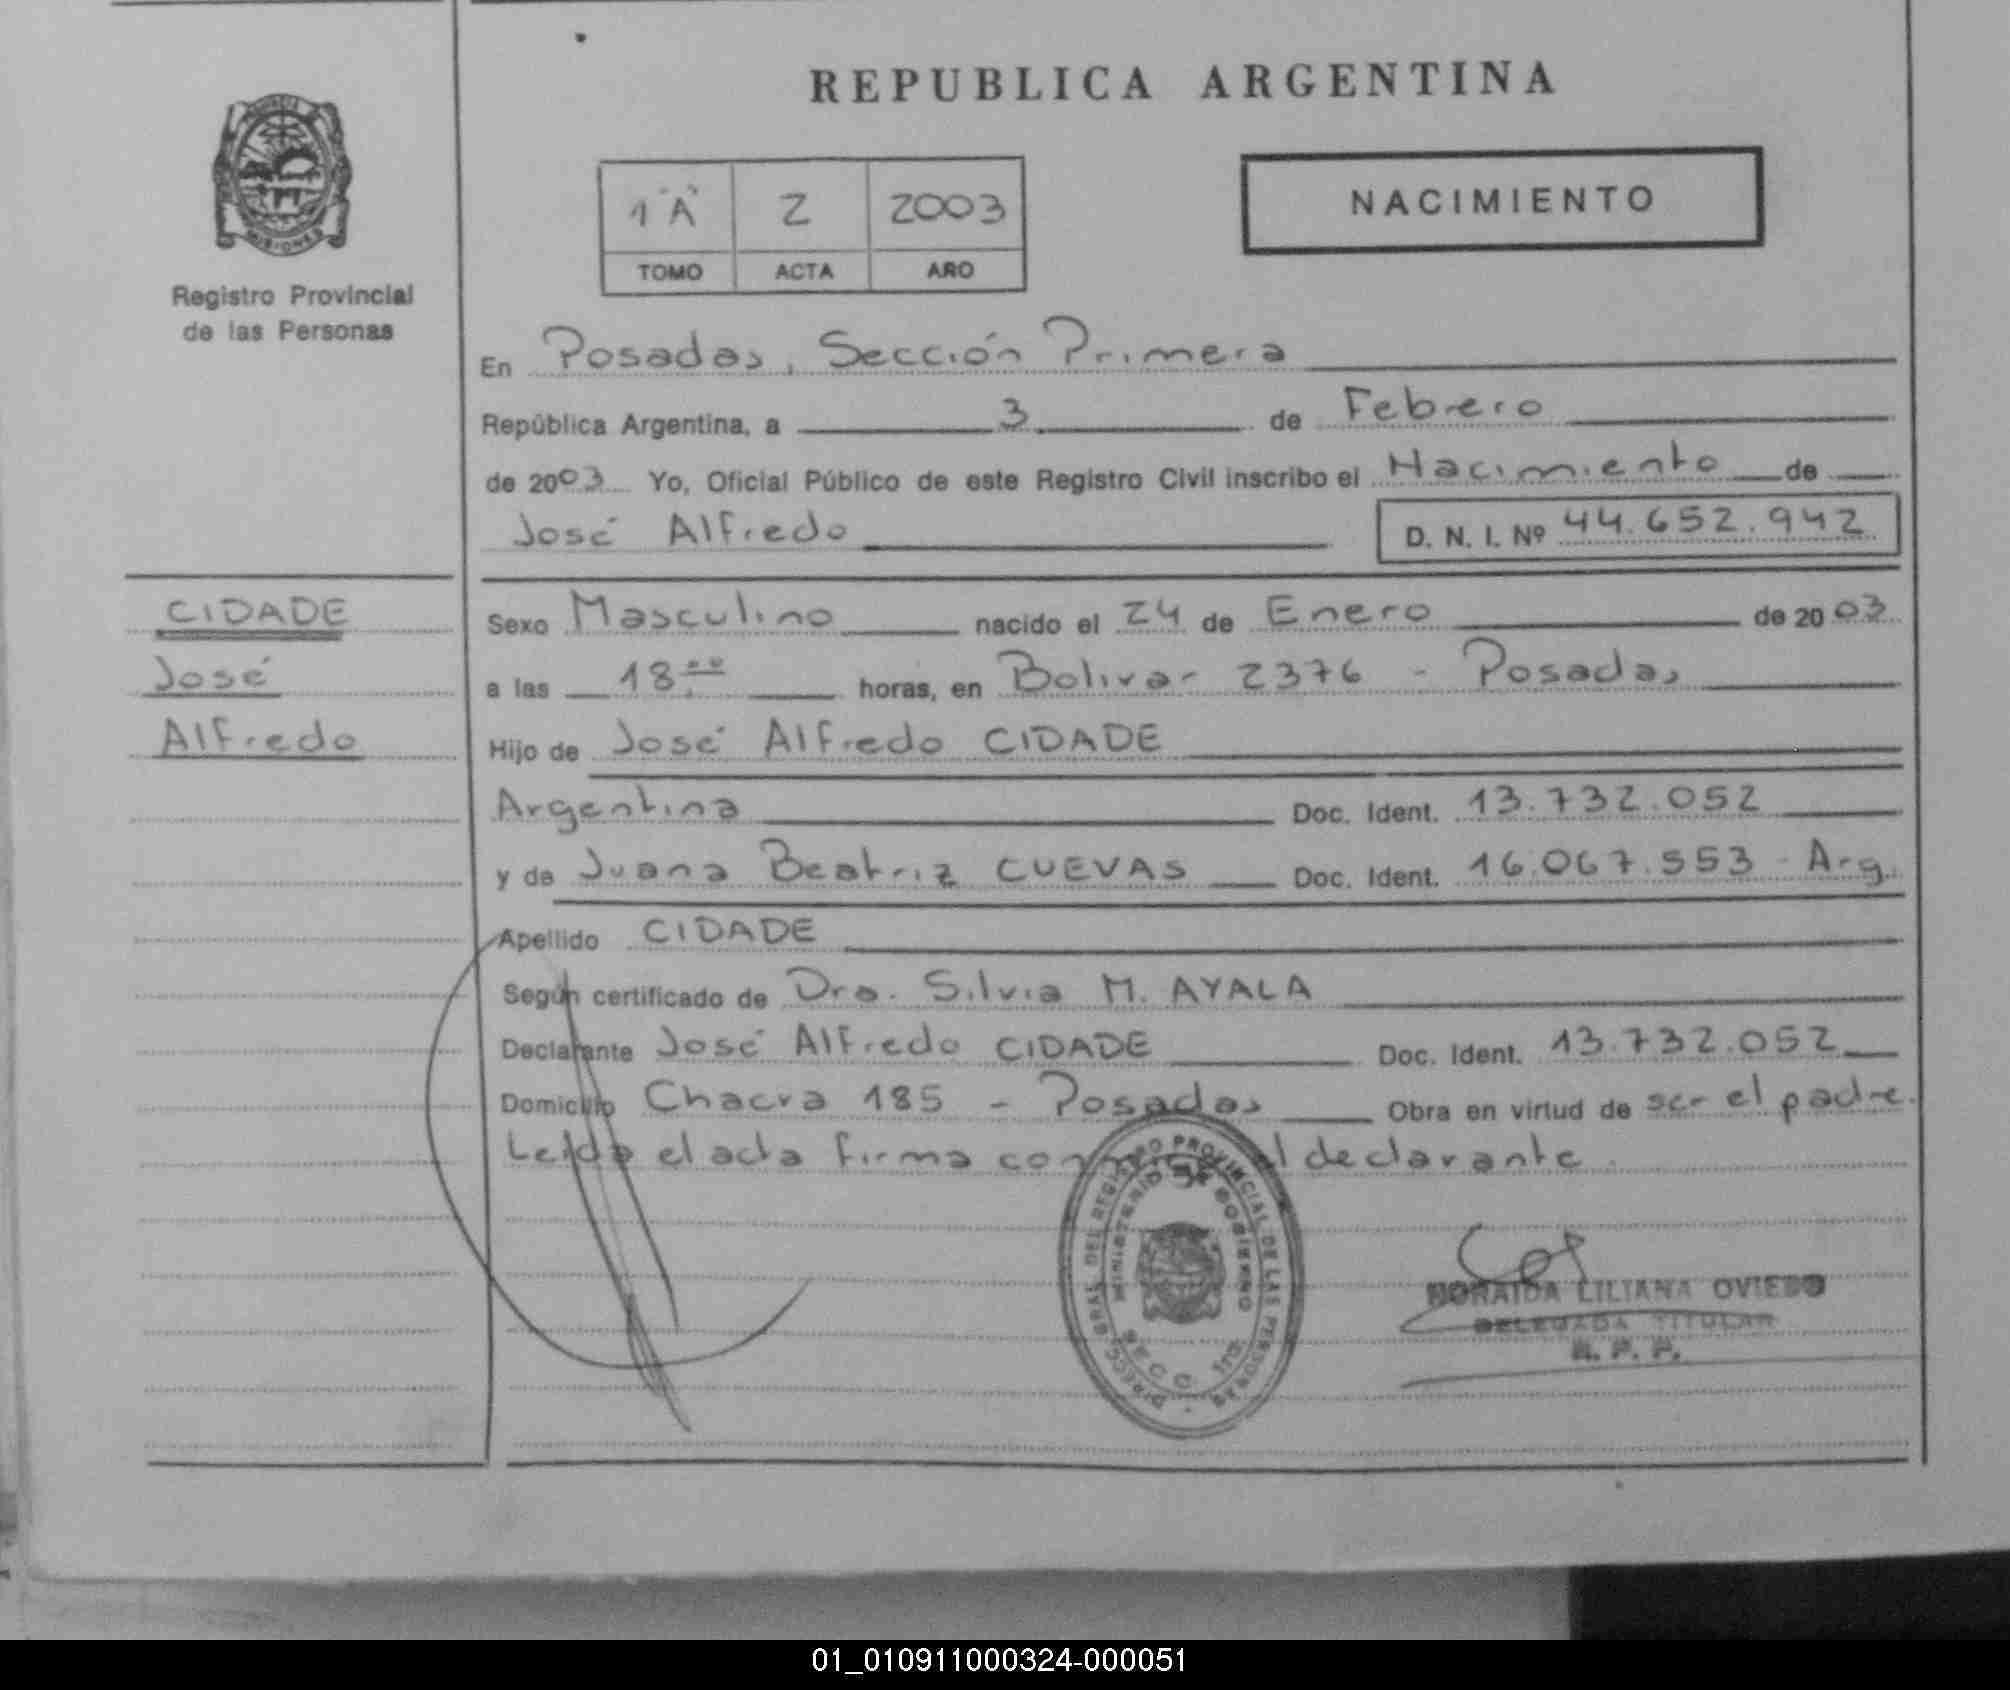 REPUBLICA ARGENTINA
1"A" 2 2003
TOMO ACTA AÑO
NACIMIENTO
MISIONES
Registro Provincial
de las Personas
En Posadas, Sección Primera
República Argentina, a 3 de Febrero
de 2003 Yo, Oficial Público de este Registro Civil inscribo el Nacimiento de
José Alfredo D. N. I. Nº 44.652.942
CIDADE
José
Alfredo
Sexo Masculino nacido el 24 de Enero de 2003
a las 18:00 horas, en Bolivar 2376 - Posadas
Hijo de José Alfredo CIDADE
Argentina Doc. Ident. 13.732.052
y de Juana Beatriz CUEVAS Doc. Ident. 16.067.553 - Arg.
Apellido CIDADE
Según certificado de Dra. Silvia M. AYALA
Declarante José Alfredo CIDADE Doc. Ident. 13.732.052
Domicilio Chacra 185 - Posadas Obra en virtud de ser el padre.
Leída el acta firma conmigo el declarante.
DIRECC. GRAL. DEL REGISTRO PROVINCIAL DE LAS PERSONAS
MINISTERIO DE GOBIERNO
SECC. 1ra.
NORAIDA LILIANA OVIEDO
DELEGADA TITULAR
R. P. P.
01_010911000324-000051